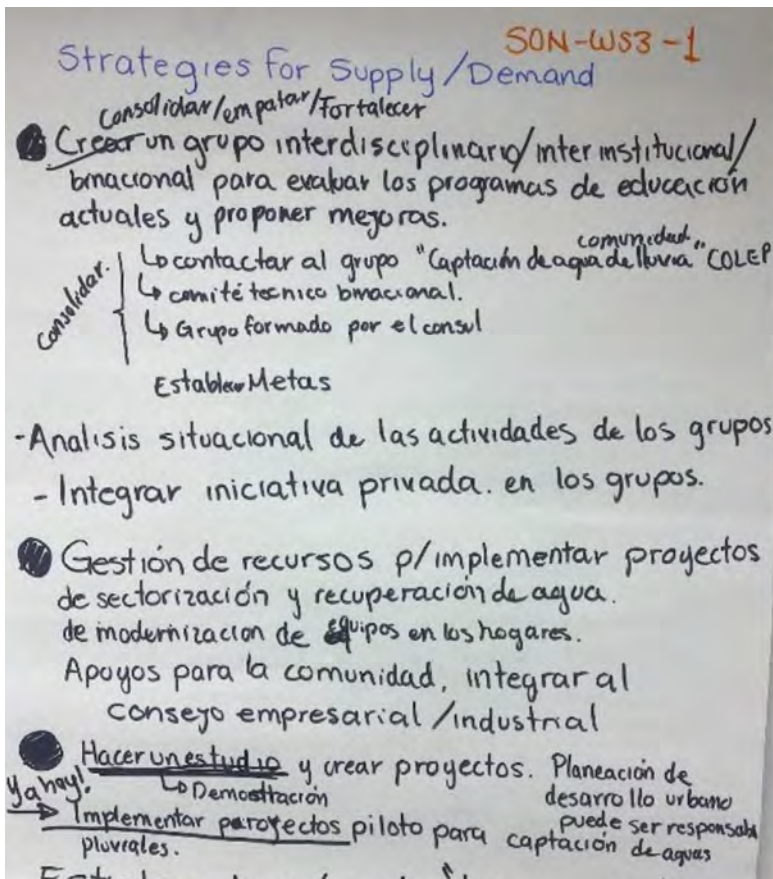 SON-WS3-1
Strategies for Supply/Demand
Consolidar/empatar/Fortalecer
Crear un grupo interdisciplinario/interinstitucional/
binacional para evaluar los programas de educación
actuales y proponer mejoras.
Consolidar.
comunidad
↳ contactar al grupo "Captación de agua de lluvia" COLEF
↳ comité tecnico binacional.
↳ Grupo formado por el consul
Establecer Metas
-Analisis situacional de las actividades de los grupos
- Integrar iniciativa privada. en los grupos.
Gestión de recursos p/implementar proyectos
de sectorización y recuperación de agua.
de modernizacion de equipos en los hogares.
Apoyos para la comunidad, integrar al
consejo empresarial/industrial
Hacer un estudio y crear proyectos. Planeación de
desarrollo urbano
puede ser responsab
Ya hay!
↳ Demostración
→ Implementar paroyectos piloto para captación de aguas
pluviales.